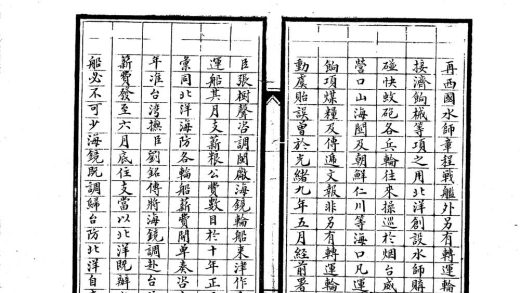 再西國水師章程戰艦外另有轉運輪
接濟餉械等項之用北洋創設水師購
碰快蚊砲各兵輪往來操巡於烟台威
營口山海關及朝鮮仁川等海口凡運
餉項煤糧及傳遞文報非另有轉運輪
動虞貽誤曾於光緒九年五月經前署
臣張樹聲咨調閩廠海鏡輪船來津作
運船其月支薪粮公費數目於十年正
彙同北洋海防各輪船薪費開單奏咨
年准台灣撫臣劉銘傳將海鏡調赴台
薪費發至六月底住支當以北洋既辦
船必不可少海鏡既調歸台防北洋自